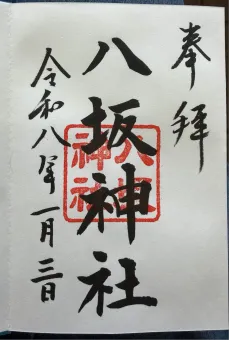 奉拝
八坂神社
令和八年一月三日
八坂神社